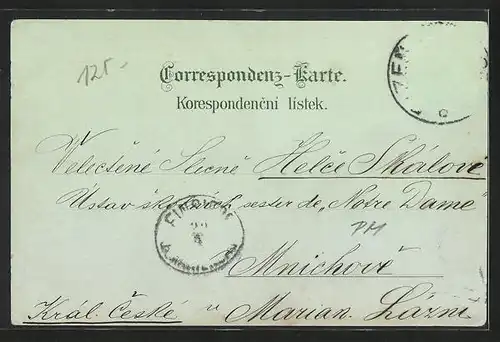 125.-
Correspondenz-Karte.
Korespondenční lístek.
Velectěné Slečně Helče Skálové
Ústav školských sester de „Notre Dame"
PM
Mnichově
Král. České u Marian. Lázní